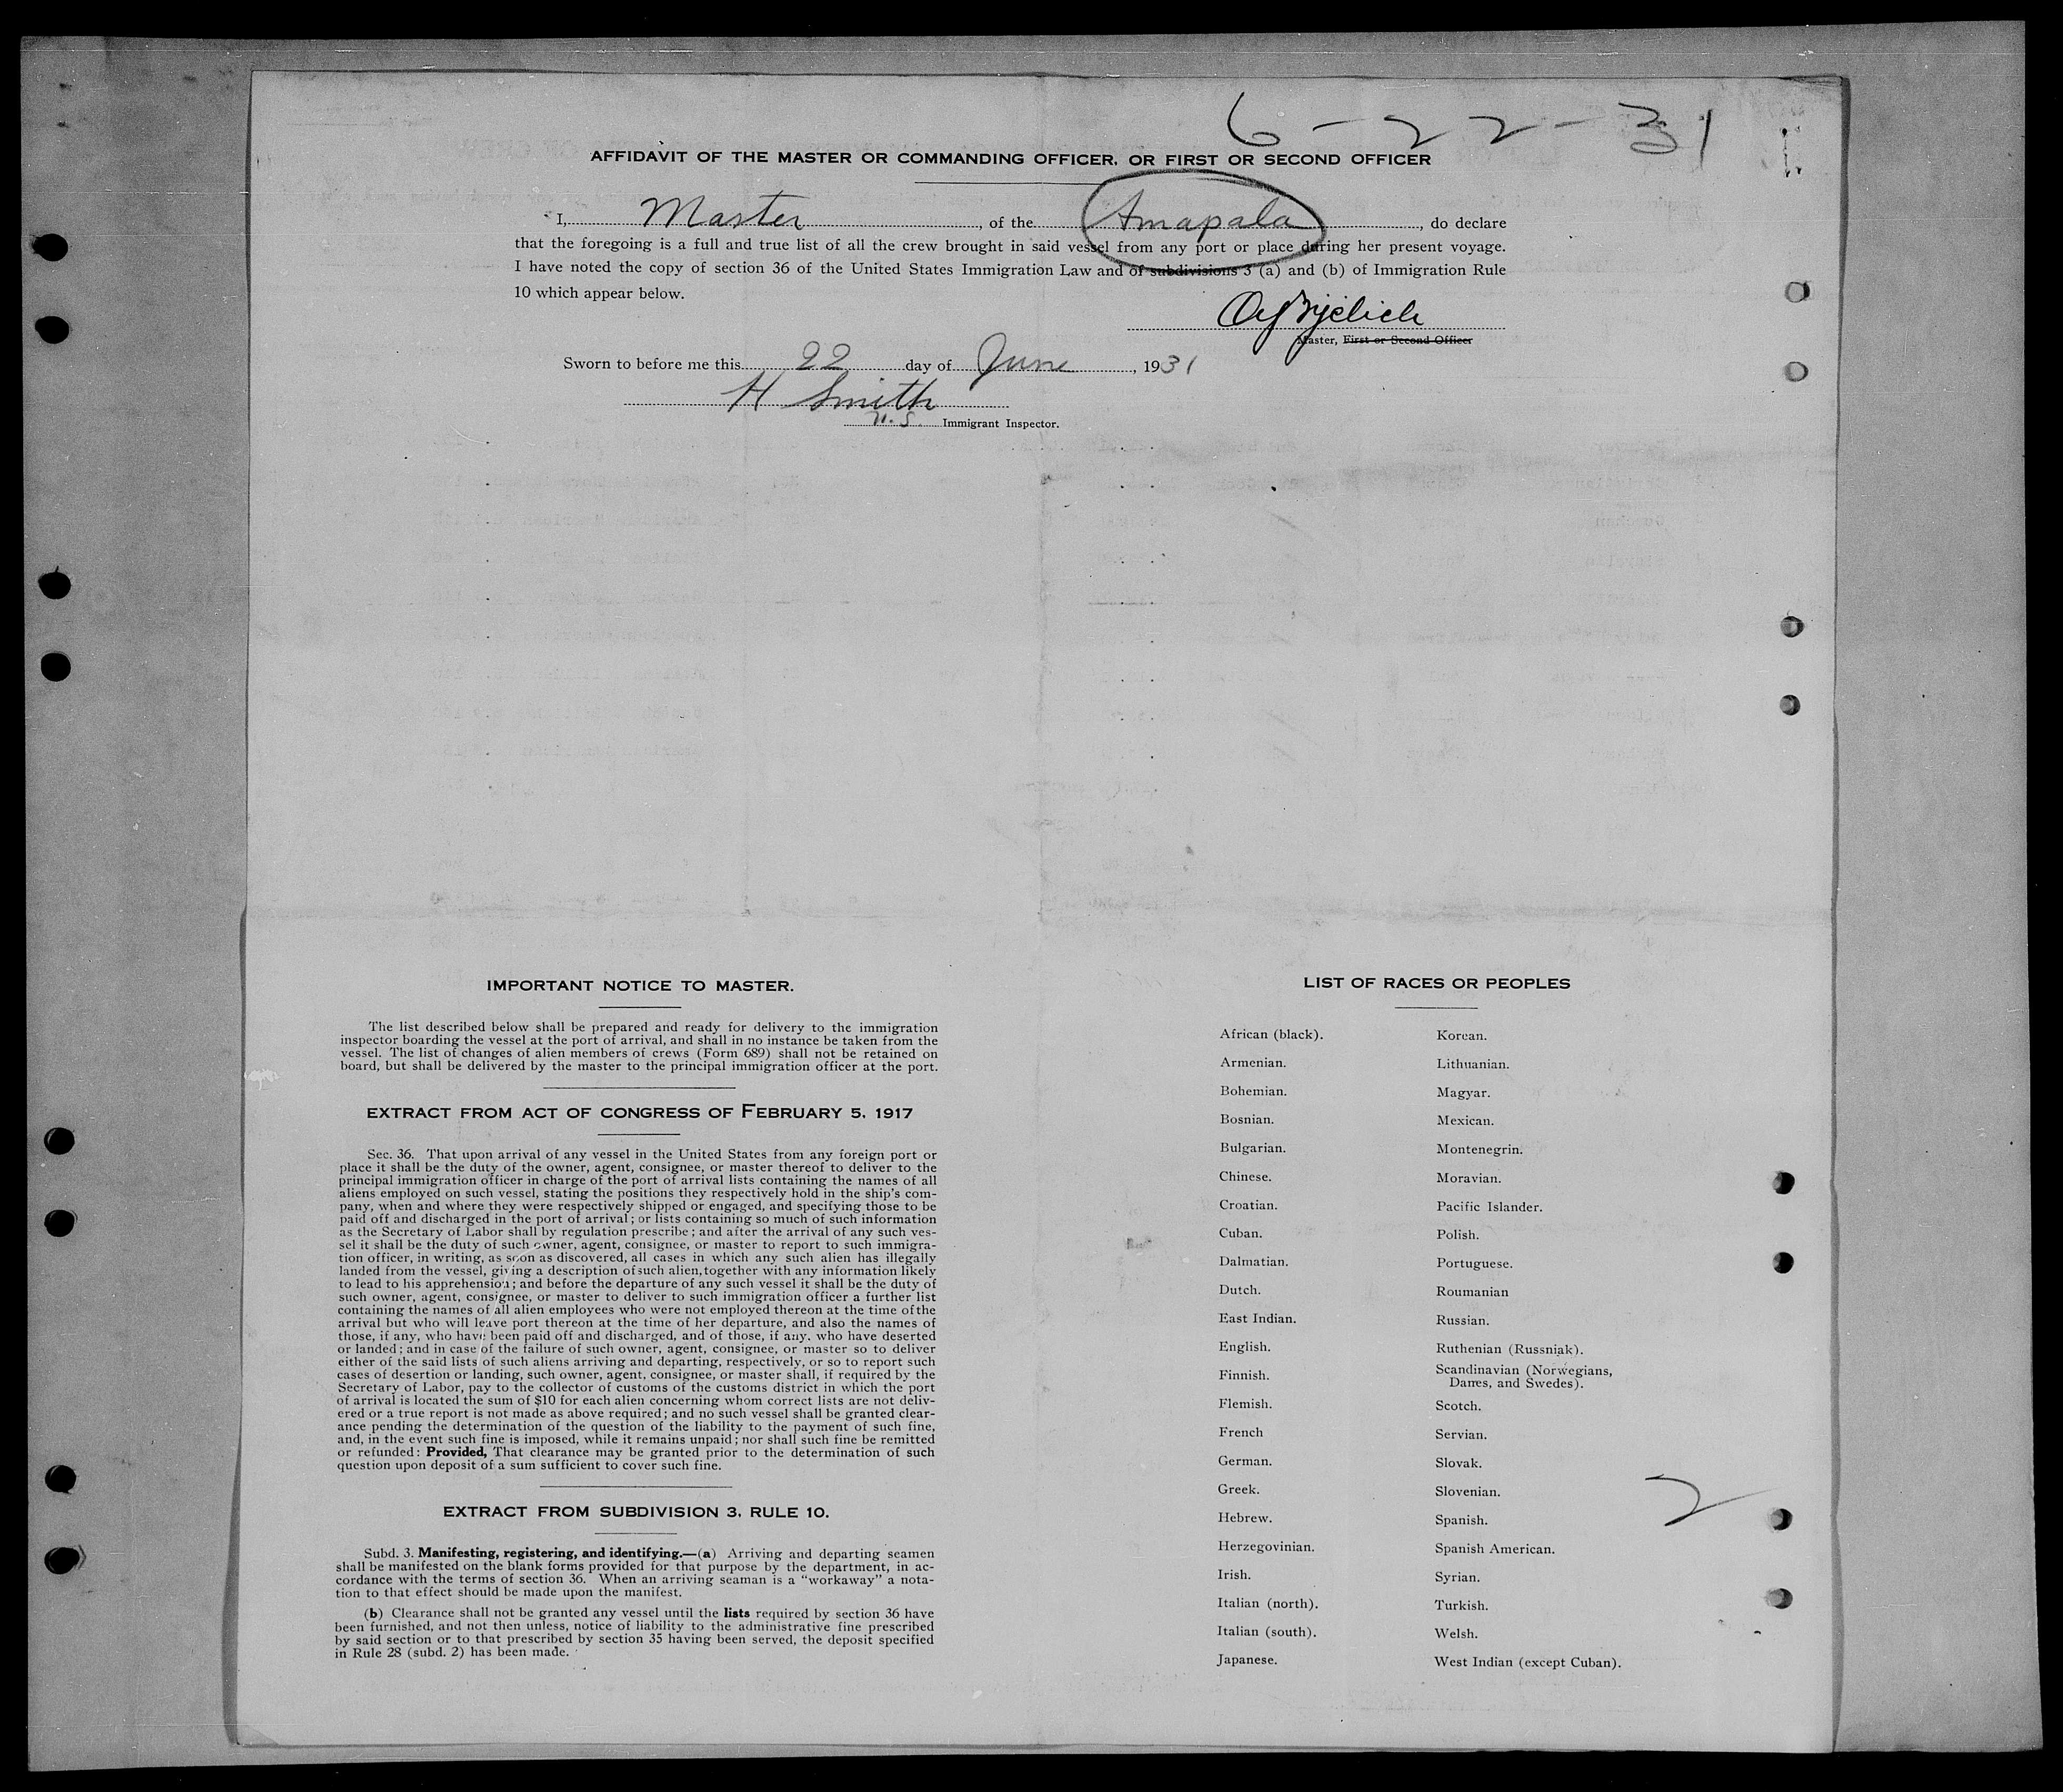 6-22-31
AFFIDAVIT OF THE MASTER OR COMMANDING OFFICER, OR FIRST OR SECOND OFFICER
I, Master, of the Amapala, do declare
that the foregoing is a full and true list of all the crew brought in said vessel from any port or place during her present voyage.
I have noted the copy of section 36 of the United States Immigration Law and of subdivisions 3 (a) and (b) of Immigration Rule
10 which appear below.
Master, First or Second Officer
Sworn to before me this 22 day of June, 1931
H Smith
U.S. Immigrant Inspector.
IMPORTANT NOTICE TO MASTER.
The list described below shall be prepared and ready for delivery to the immigration
inspector boarding the vessel at the port of arrival, and shall in no instance be taken from the
vessel. The list of changes of alien members of crews (Form 689) shall not be retained on
board, but shall be delivered by the master to the principal immigration officer at the port.
EXTRACT FROM ACT OF CONGRESS OF FEBRUARY 5, 1917
Sec. 36. That upon arrival of any vessel in the United States from any foreign port or
place it shall be the duty of the owner, agent, consignee, or master thereof to deliver to the
principal immigration officer in charge of the port of arrival lists containing the names of all
aliens employed on such vessel, stating the positions they respectively hold in the ship's com-
pany, when and where they were respectively shipped or engaged, and specifying those to be
paid off and discharged in the port of arrival; or lists containing so much of such information
as the Secretary of Labor shall by regulation prescribe; and after the arrival of any such ves-
sel it shall be the duty of such owner, agent, consignee, or master to report to such immigra-
tion officer, in writing, as soon as discovered, all cases in which any such alien has illegally
landed from the vessel, giving a description of such alien, together with any information likely
to lead to his apprehension; and before the departure of any such vessel it shall be the duty of
such owner, agent, consignee, or master to deliver to such immigration officer a further list
containing the names of all alien employees who were not employed thereon at the time of the
arrival but who will leave port thereon at the time of her departure, and also the names of
those, if any, who have been paid off and discharged, and of those, if any, who have deserted
or landed; and in case of the failure of such owner, agent, consignee, or master so to deliver
either of the said lists of such aliens arriving and departing, respectively, or so to report such
cases of desertion or landing, such owner, agent, consignee, or master shall, if required by the
Secretary of Labor, pay to the collector of customs of the customs district in which the port
of arrival is located the sum of $10 for each alien concerning whom correct lists are not deliv-
ered or a true report is not made as above required; and no such vessel shall be granted clear-
ance pending the determination of the question of the liability to the payment of such fine,
and, in the event such fine is imposed, while it remains unpaid; nor shall such fine be remitted
or refunded: Provided, That clearance may be granted prior to the determination of such
question upon deposit of a sum sufficient to cover such fine.
EXTRACT FROM SUBDIVISION 3, RULE 10.
Subd. 3. Manifesting, registering, and identifying.—(a) Arriving and departing seamen
shall be manifested on the blank forms provided for that purpose by the department, in ac-
cordance with the terms of section 36. When an arriving seaman is a "workaway" a nota-
tion to that effect should be made upon the manifest.
(b) Clearance shall not be granted any vessel until the lists required by section 36 have
been furnished, and not then unless, notice of liability to the administrative fine prescribed
by said section or to that prescribed by section 35 having been served, the deposit specified
in Rule 28 (subd. 2) has been made.
LIST OF RACES OR PEOPLES
African (black).
Armenian.
Bohemian.
Bosnian.
Bulgarian.
Chinese.
Croatian.
Cuban.
Dalmatian.
Dutch.
East Indian.
English.
Finnish.
Flemish.
French
German.
Greek.
Hebrew.
Herzegovinian.
Irish.
Italian (north).
Italian (south).
Japanese.
Korean.
Lithuanian.
Magyar.
Mexican.
Montenegrin.
Moravian.
Pacific Islander.
Polish.
Portuguese.
Roumanian
Russian.
Ruthenian (Russniak).
Scandinavian (Norwegians,
Danes, and Swedes).
Scotch.
Servian.
Slovak.
Slovenian.
Spanish.
Spanish American.
Syrian.
Turkish.
Welsh.
West Indian (except Cuban).
2